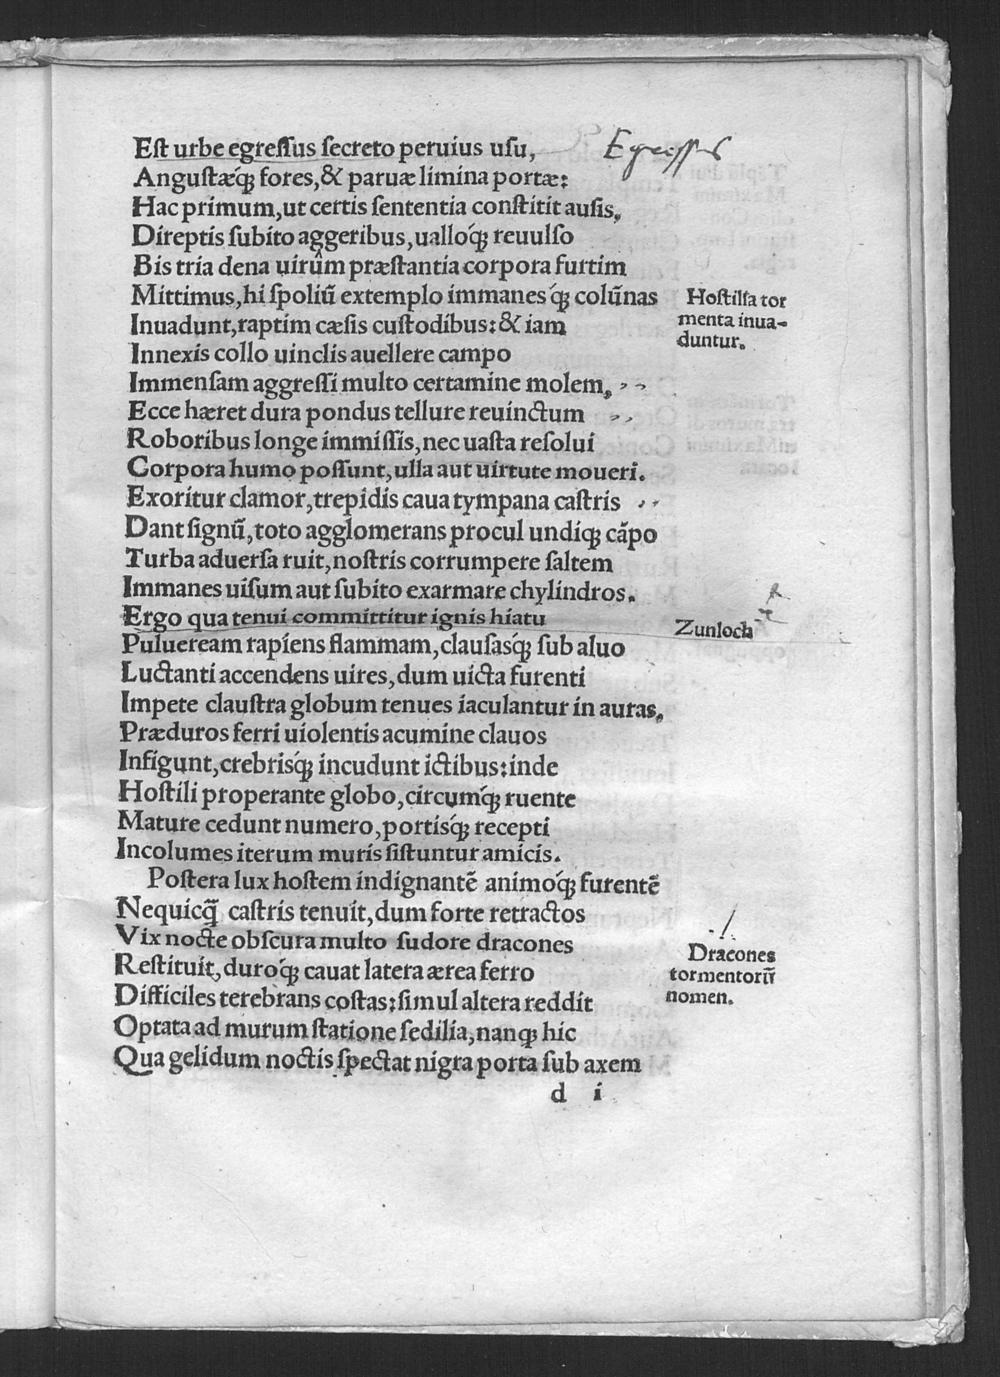 Est urbe egressus secreto peruius usu,
Egressus
Angustæq́; fores, & paruæ limina portæ:
Hac primum, ut certis sententia constitit ausis,
Direptis subito aggeribus, ualloq́; reuulso
Bis tria dena uirûm præstantia corpora furtim
Mittimus, hi spoliū extemplo immanesq́; colūnas
Inuadunt, raptim cæsis custodibus: & iam
Hostilia tor
menta inua-
duntur.
Innexis collo uinclis auellere campo
Immensam aggressi multo certamine molem,
Ecce hæret dura pondus tellure reuinctum
Roboribus longe immissis, nec uasta resolui
Corpora humo possunt, ulla aut uirtute moueri.
Exoritur clamor, trepidis caua tympana castris
Dant signū, toto agglomerans procul undiq; cāpo
Turba aduersa ruit, nostris corrumpere saltem
Immanes uisum aut subito exarmare chylindros.
Ergo qua tenui committitur ignis hiatu
Zunloch
Pulueream rapiens flammam, clausasq́; sub aluo
Luctanti accendens uires, dum uicta furenti
Impete claustra globum tenues iaculantur in auras,
Præduros ferri uiolentis acumine clauos
Infigunt, crebrisq́; incudunt ictibus: inde
Hostili properante globo, circumq́; ruente
Mature cedunt numero, portisq́; recepti
Incolumes iterum muris sistuntur amicis.
Postera lux hostem indignantē animoq́; furentē
Nequicq̄ castris tenuit, dum forte retractos
Vix nocte obscura multo sudore dracones
Restituit, duroq́; cauat latera ærea ferro
Difficiles terebrans costas: simul altera reddit
Dracones
tormentorū
nomen.
Optata ad murum statione sedilia, nanq; hic
Qua gelidum noctis spectat nigra porta sub axem
d i